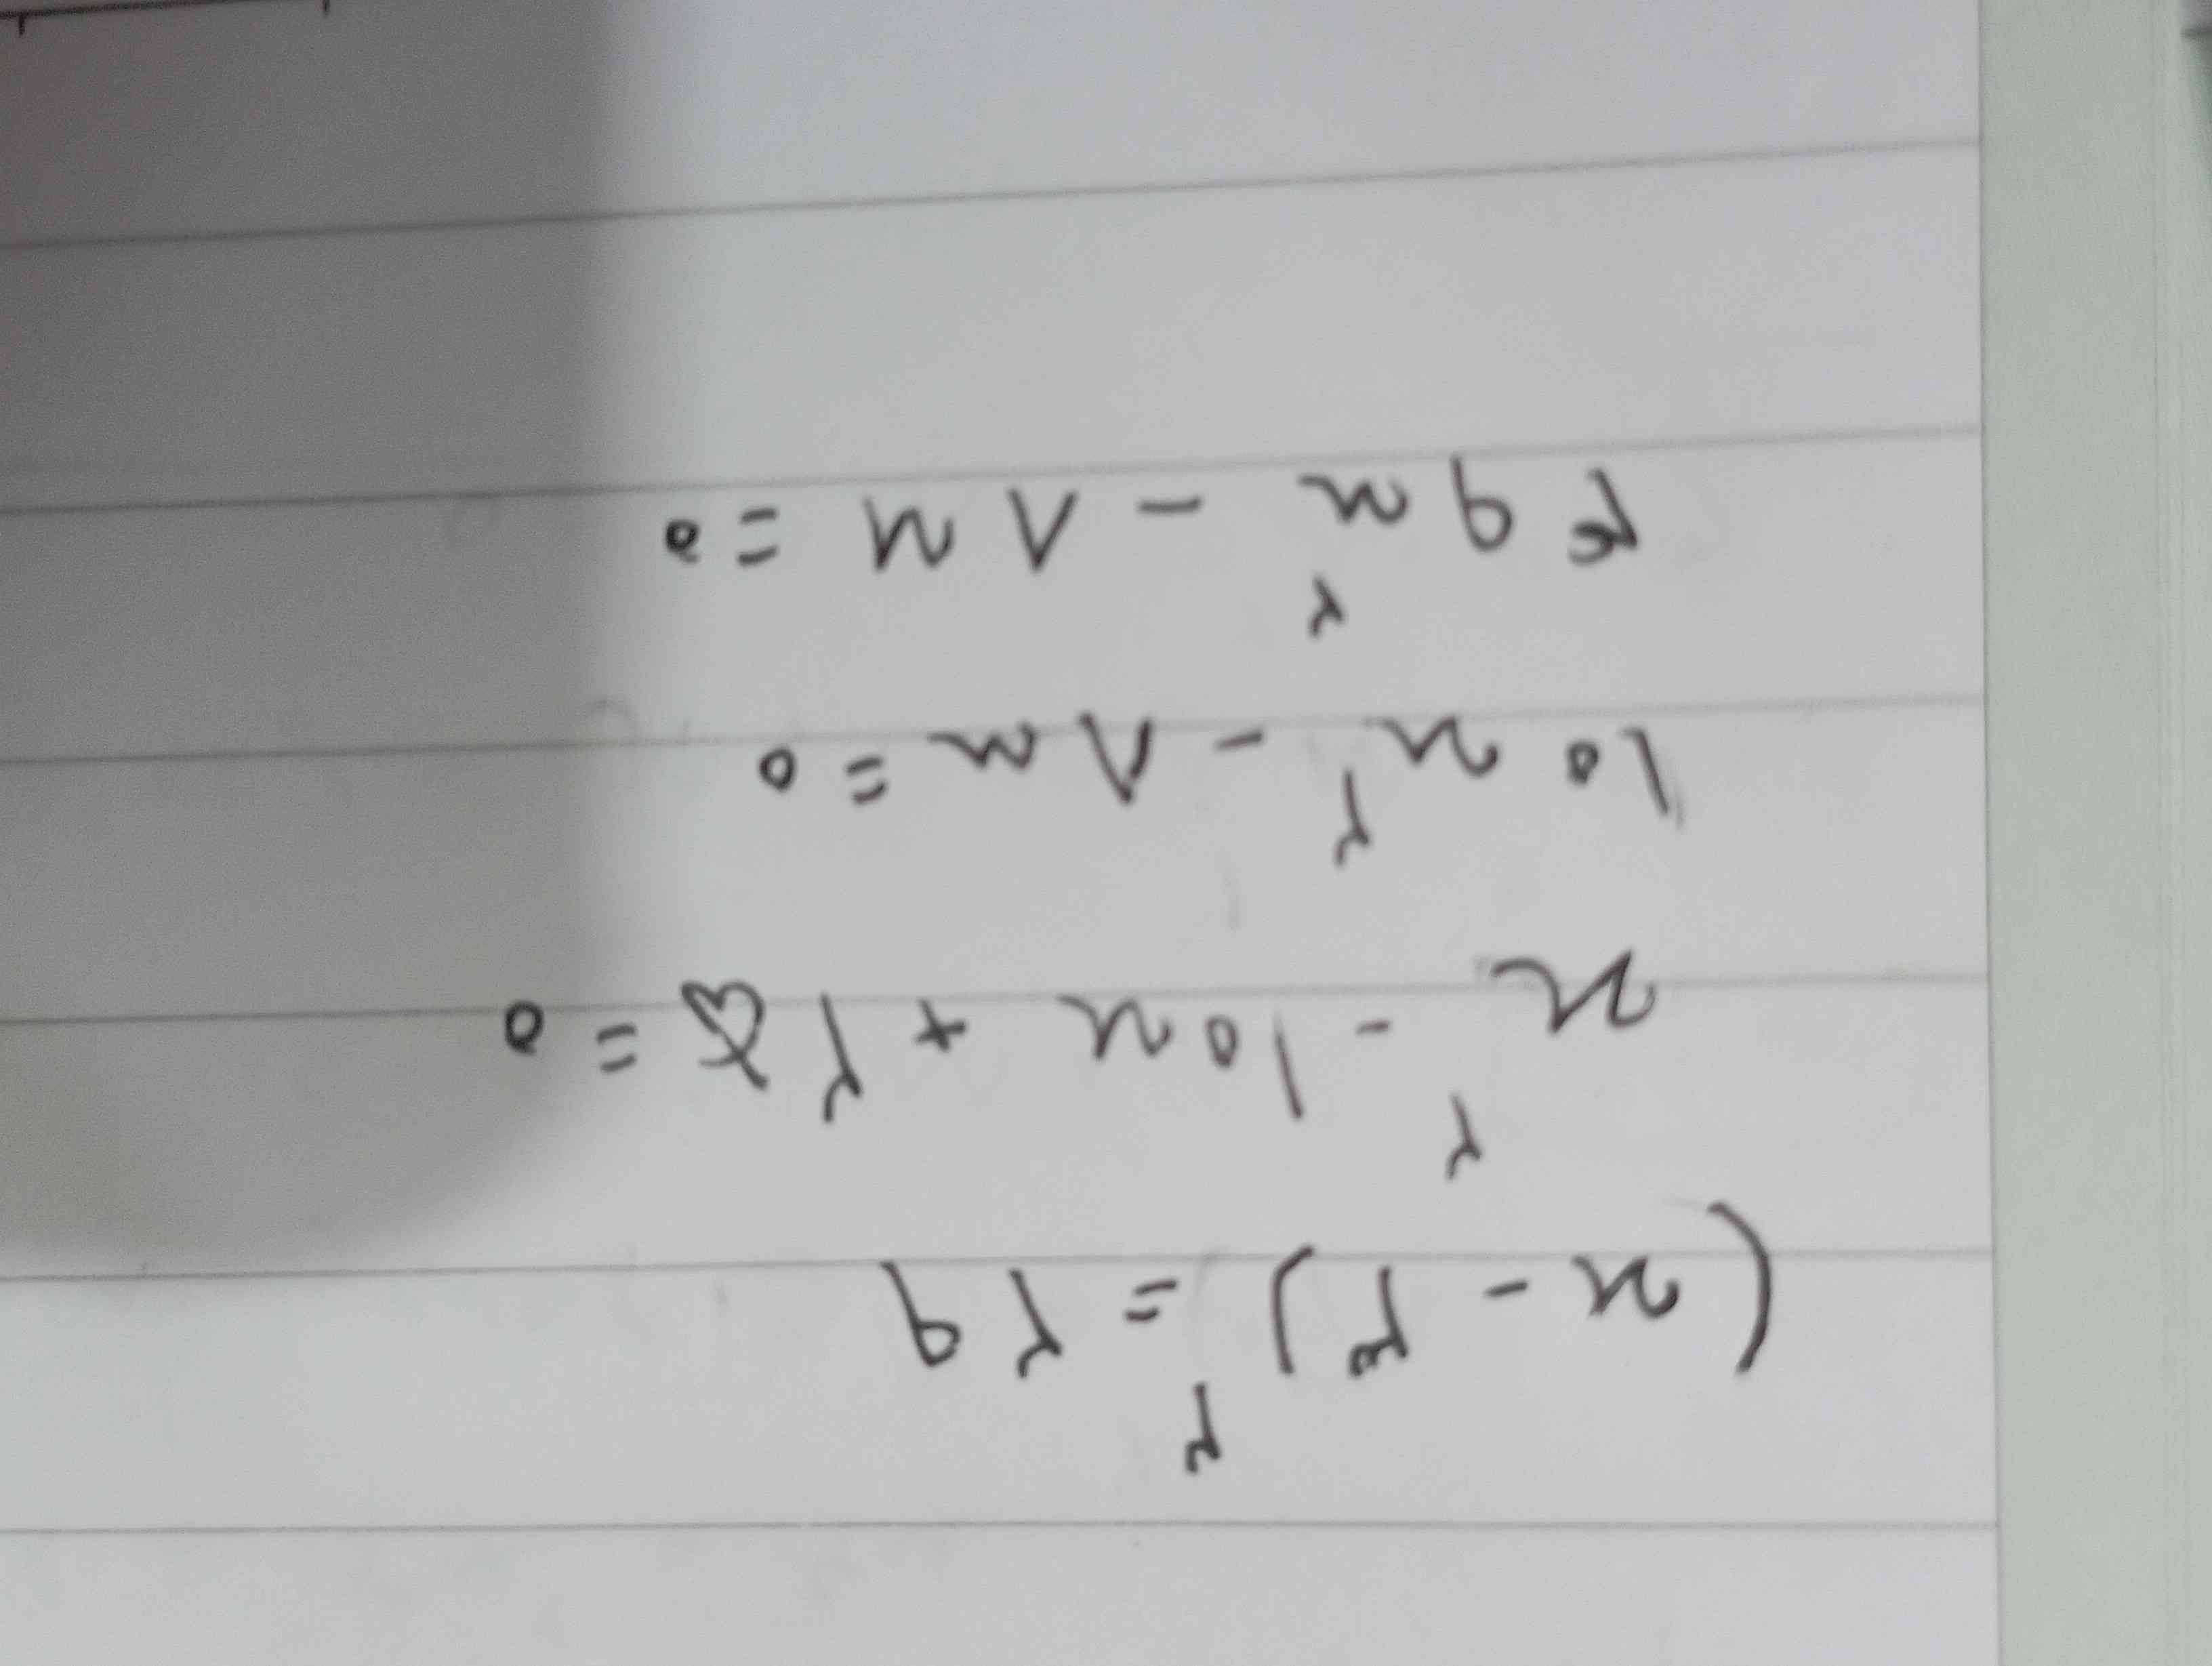 (x - ۴)^۲ = ۲۹
x^۲ - ۱۰x + ۲۵ = ۰
۱۰x^۲ - ۸x = ۰
۴۹x^۲ - ۸x = ۰